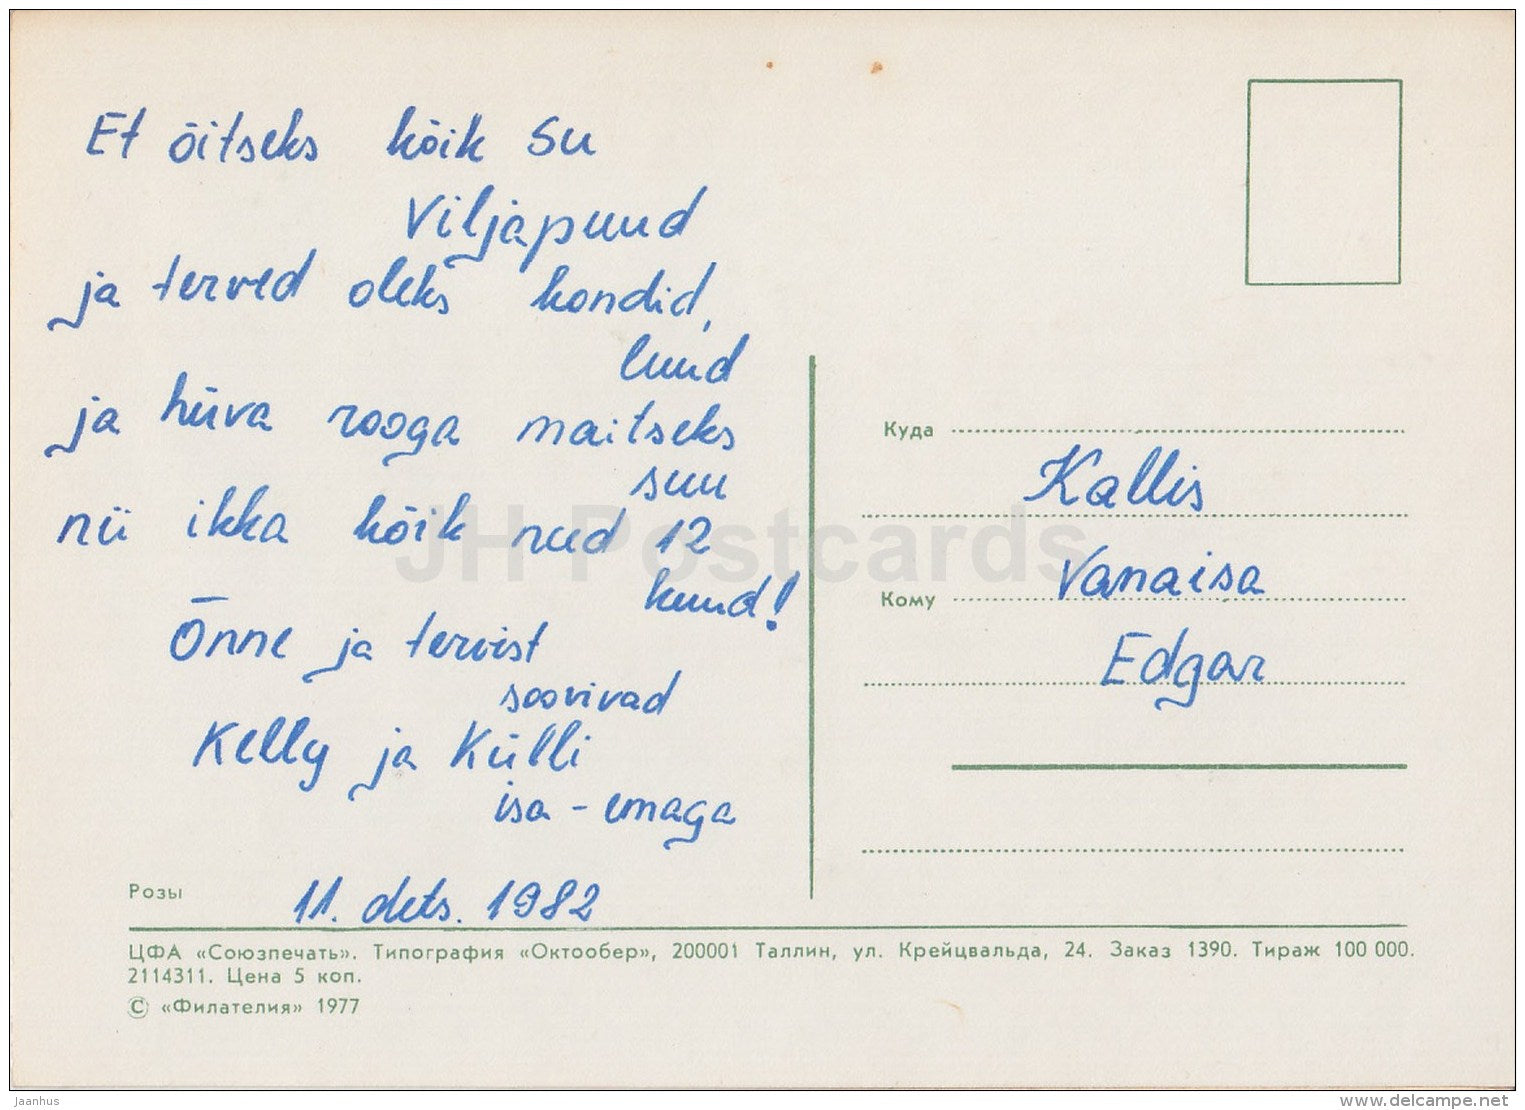 Et õitseks kõik Su
Viljapuud
ja terved oleks kondid,
luud
ja hüva rooga maitseks
suu
nii ikka kõik need 12
kuud!
Õnne ja tervist
soovivad
Kelly ja Külli
isa - emaga
11. dets. 1982
Куда
Kallis
Vanaisa
Кому
Edgar
Розы
ЦФА «Союзпечать». Типография «Октообер», 200001 Таллин, ул. Крейцвальда, 24. Заказ 1390. Тираж 100 000.
2114311. Цена 5 коп.
© «Филателия» 1977
JH Postcards
Jaanhus
www.delcampe.net